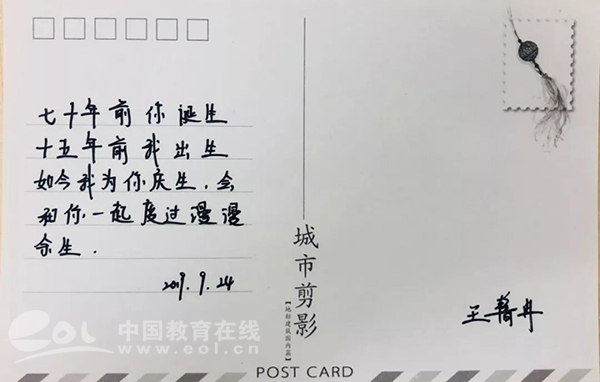 七十年前你诞生
十五年前我出生
如今我为你庆生,会
和你一起度过漫漫
余生.
2019.9.24
城市剪影
【地标建筑国内篇】
王
冉
eol 中国教育在线
www.eol.cn
POST CARD